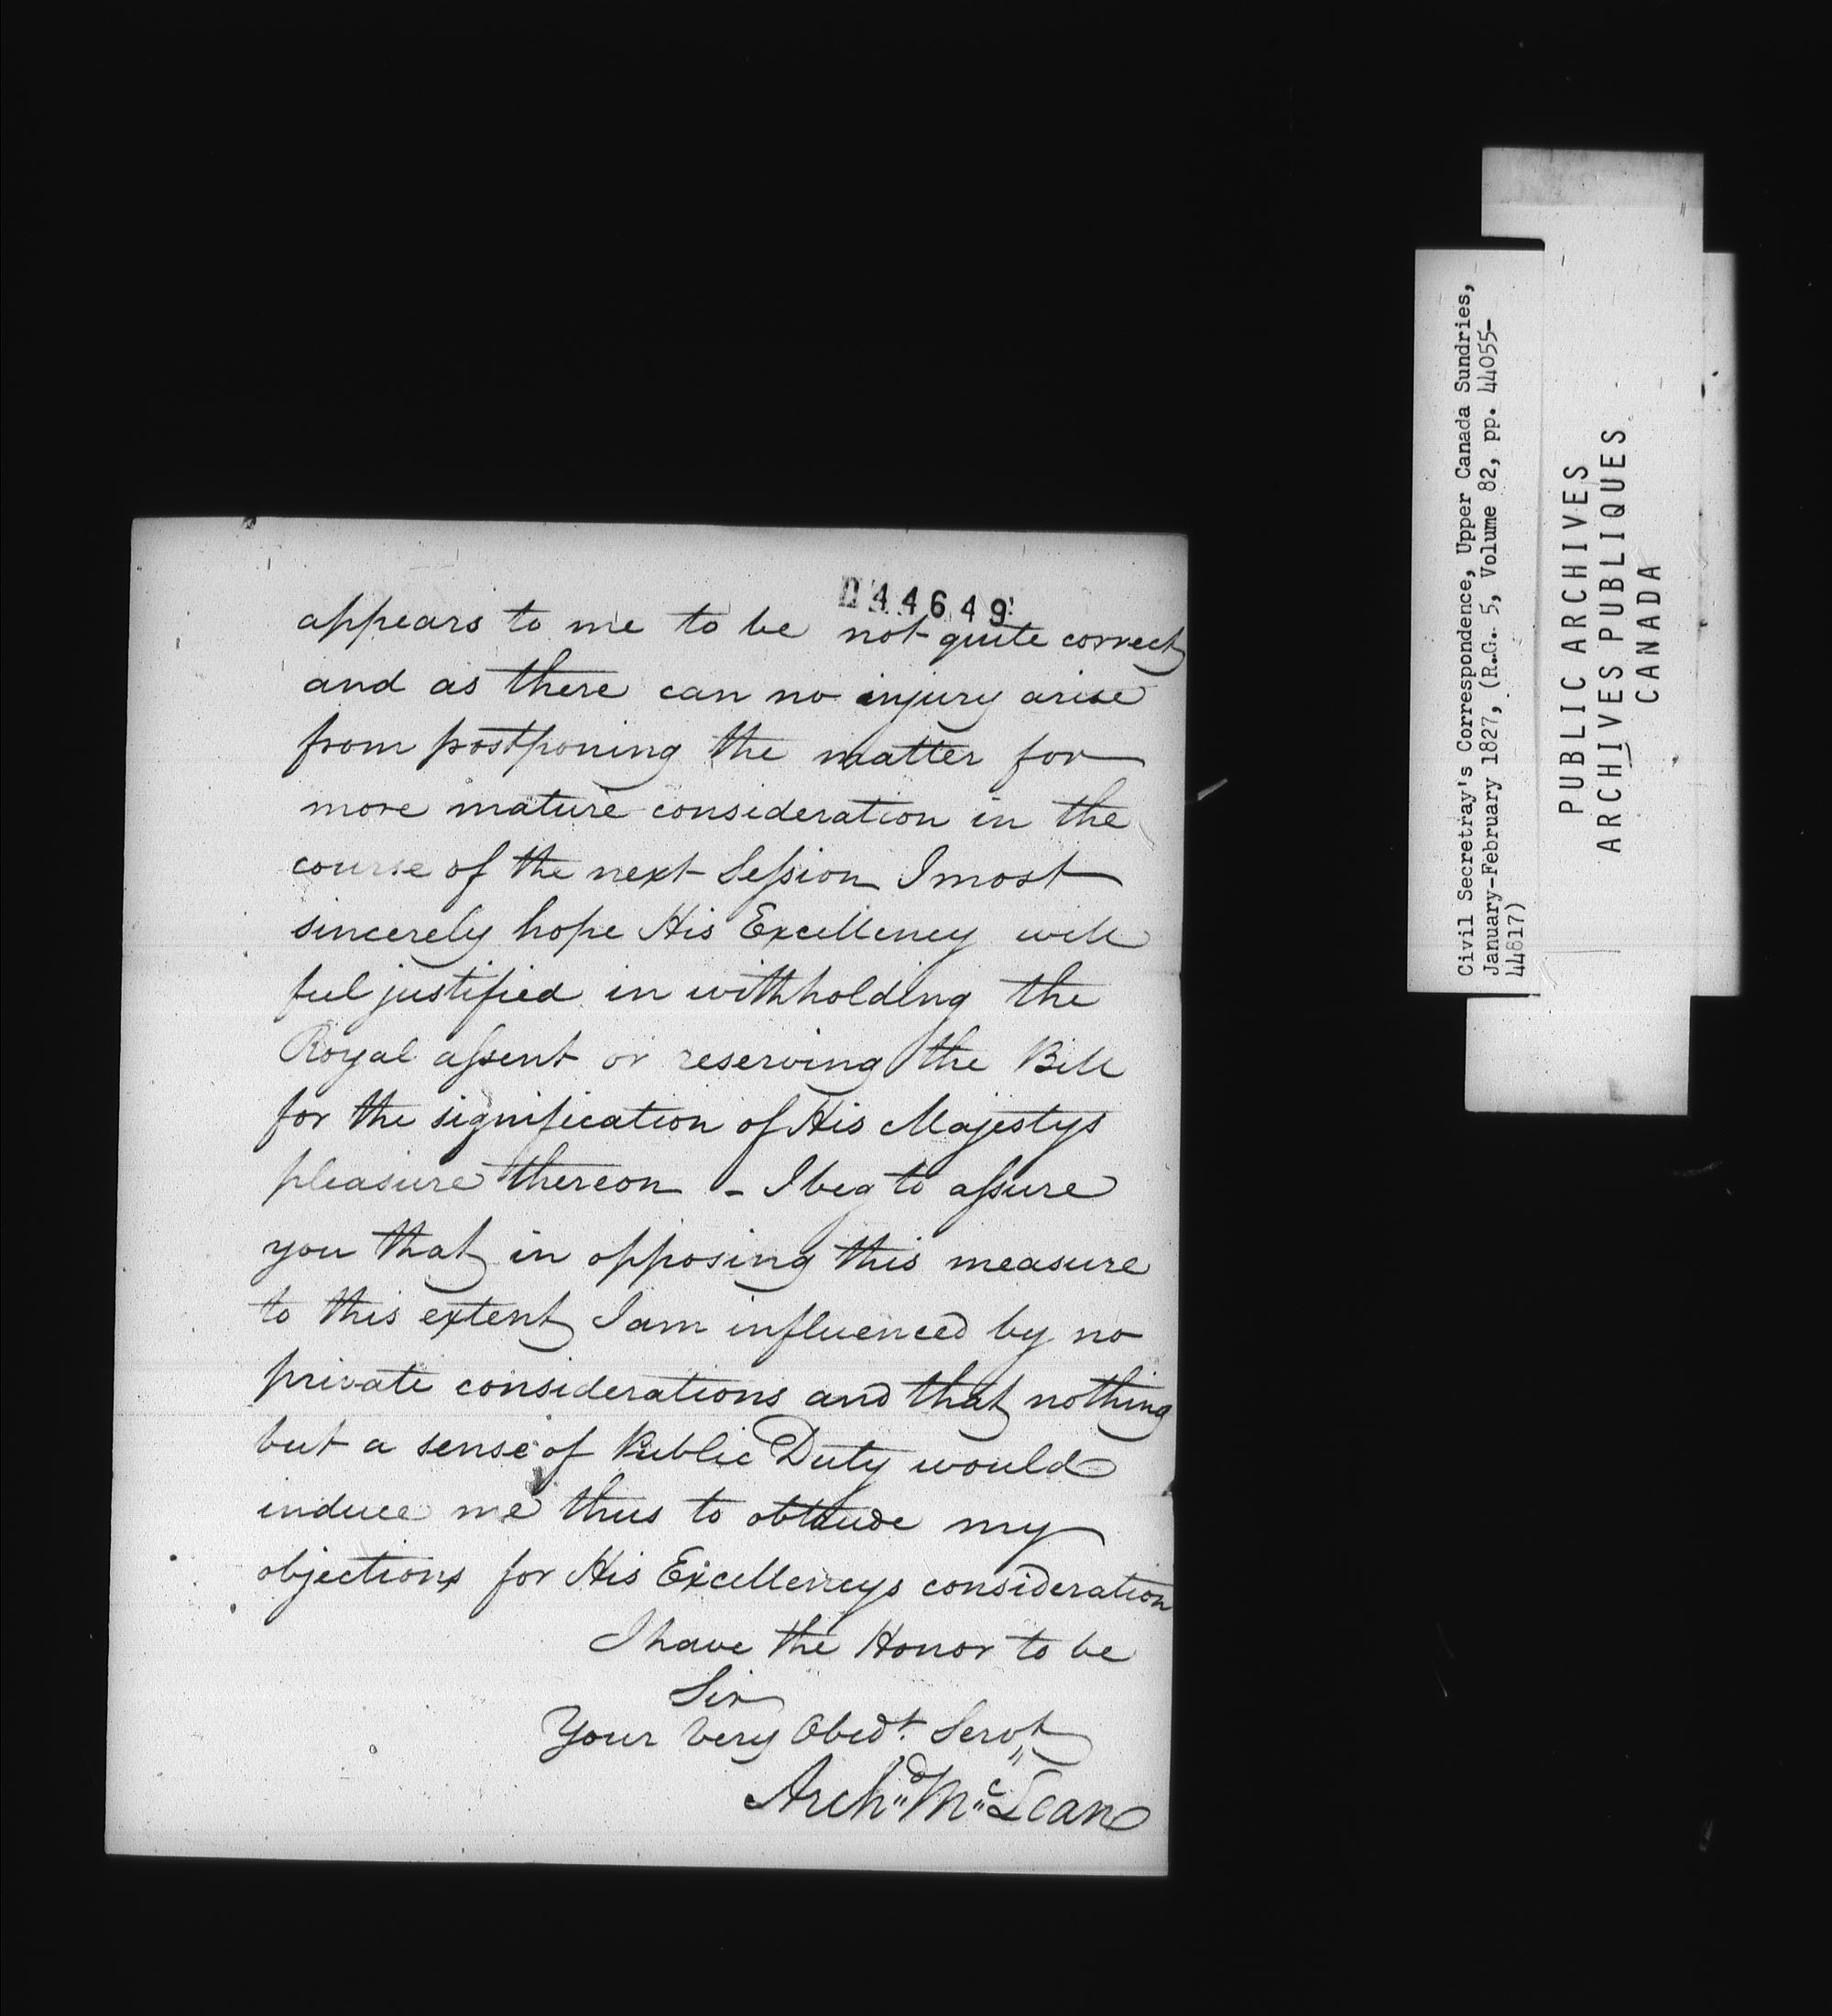 044649
appears to me to be not quite correct
and as there can no injury arise
from postponing the matter for
more mature consideration in the
course of the next Session I most
sincerely hope His Excellency will
feel justified in withholding the
Royal assent or reserving the Bill
for the signification of His Majestys
pleasure thereon - I beg to assure
you that in opposing this measure
to this extent I am influenced by no
private considerations and that nothing
but a sense of Public Duty would
induce me thus to obtrude my
objections for His Excellencys consideration
I have the Honor to be
Sir
Your Very Obedt. Servt
Archd McLean
Civil Secretray's Correspondence, Upper Canada Sundries,
January-February 1827, (R.G. 5, Volume 82, pp. 44055-
44817)
PUBLIC ARCHIVES
ARCHIVES PUBLIQUES
CANADA